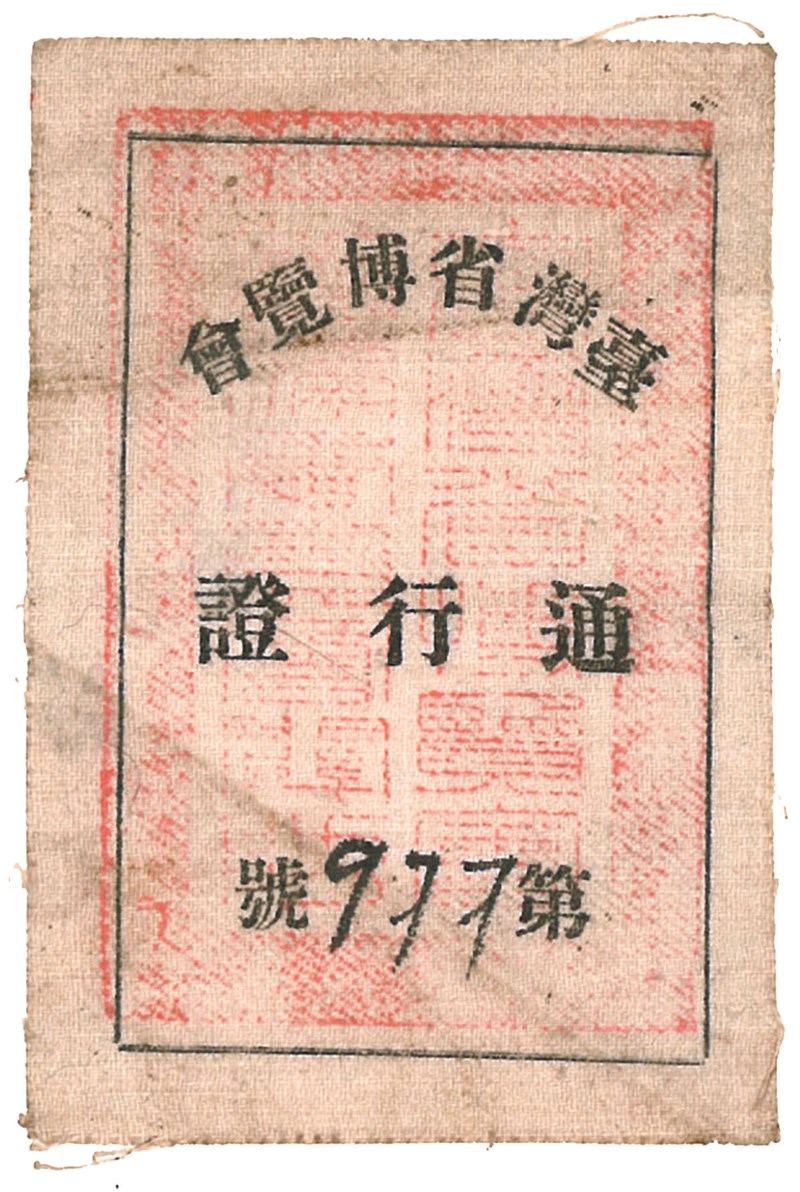 臺灣省博覽會
通行證
第977號